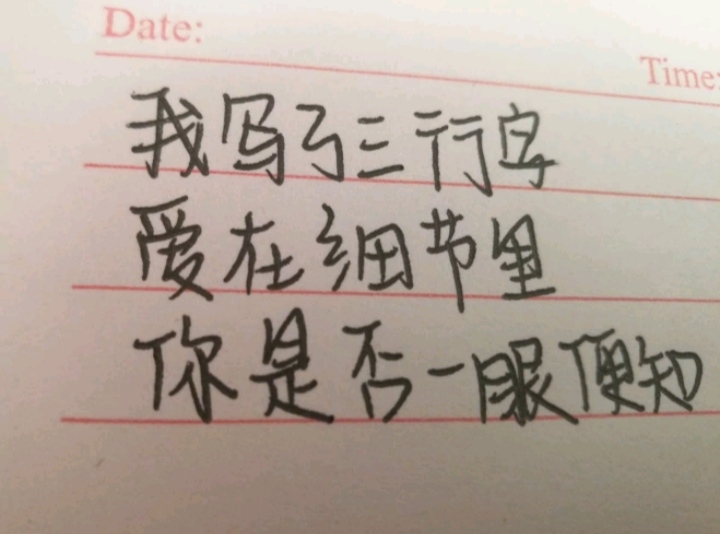 Date:
Time:
我写了三行字
爱在细节里
你是否一眼便知